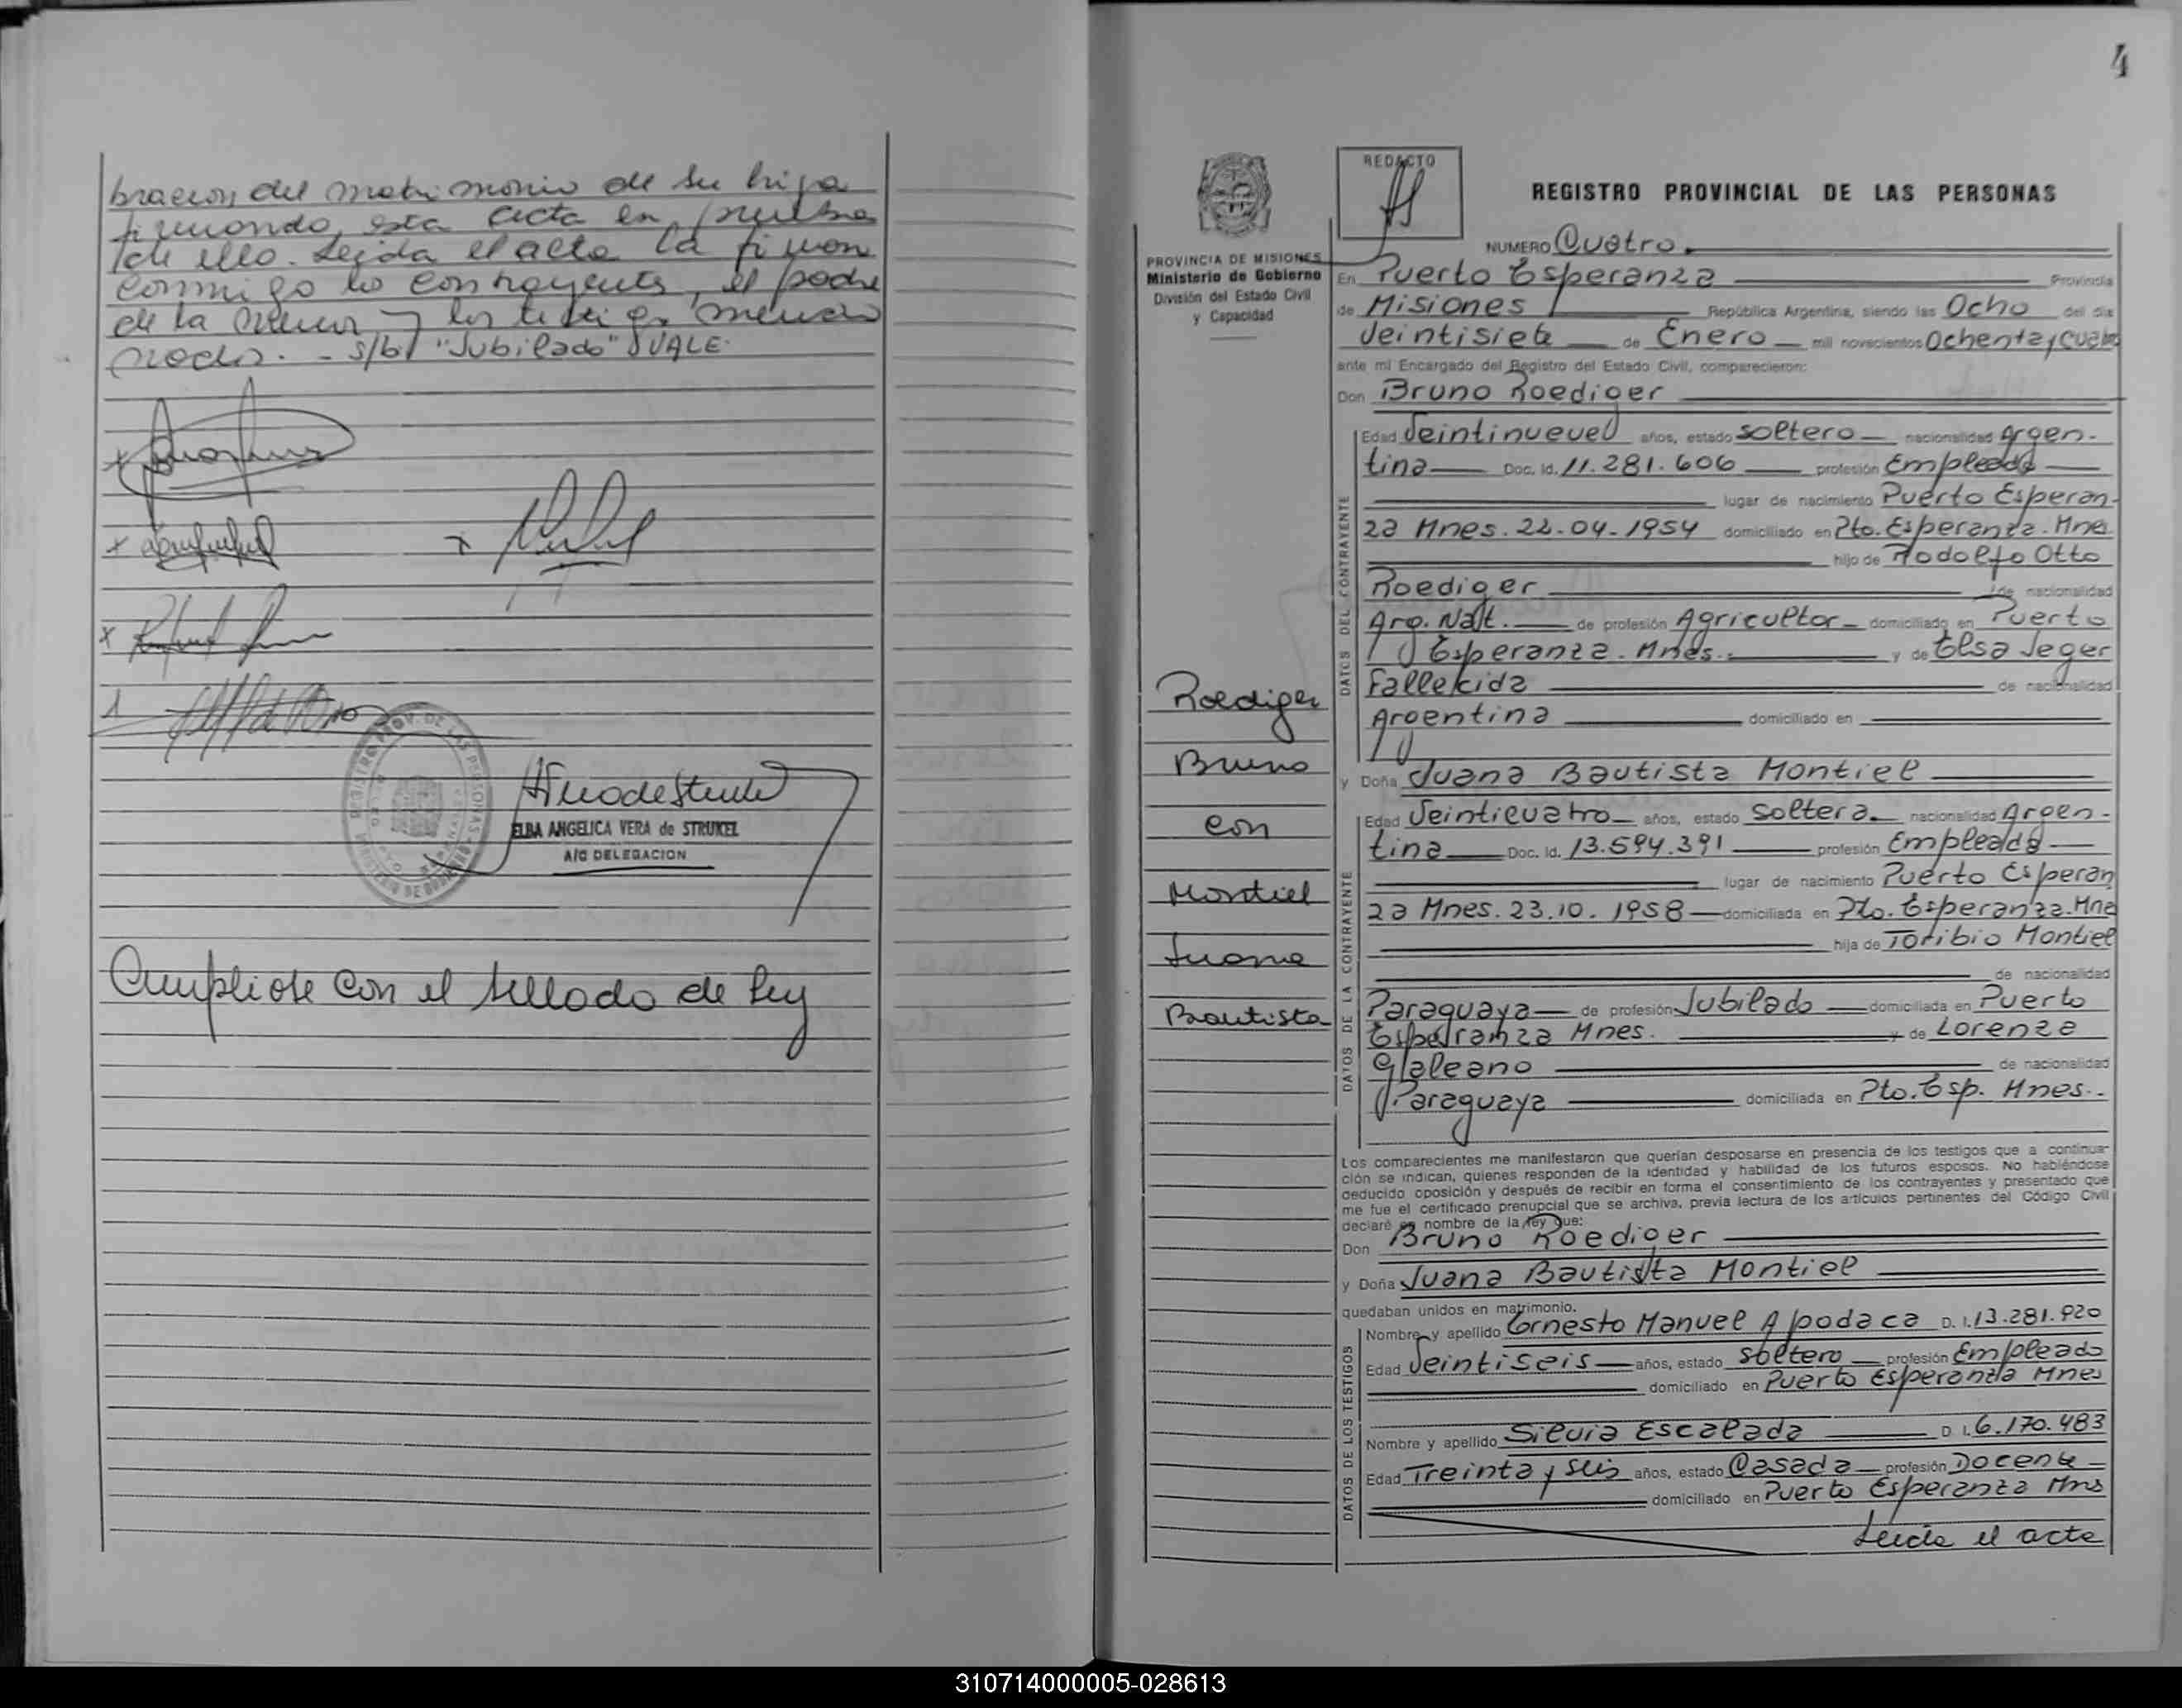 bracion del matrimonio de su hija
firmando esta acta en prueba
de ello. Leida el acta la firman
conmigo los contrayentes, el padre
de la menor y los testigos mencio
nados. - S/b. "Jubilado" VALE.
REGISTRO PROV. DE LAS PERSONAS
ELBA ANGELICA VERA de STRUKEL
A/C DELEGACION
Cumpliose con el sellado de ley
4
REDACTO
REGISTRO PROVINCIAL DE LAS PERSONAS
PROVINCIA DE MISIONES
Ministerio de Gobierno
División del Estado Civil
y Capacidad
NUMERO Cuatro.
En Puerto Esperanza Provincia
de Misiones República Argentina, siendo las Ocho del día
Veintisiete de Enero mil novecientos Ochenta y Cuatro
ante mi Encargado del Registro del Estado Civil, comparecieron:
Don Bruno Roediger
Roediger
Bruno
con
Montiel
Juana
Bautista
DATOS DEL CONTRAYENTE
Edad Veintinueve años, estado soltero nacionalidad Argen-
tina Doc. Id. 11.281.606 profesión Empleado
lugar de nacimiento Puerto Esperan-
za Mnes. 22-04-1954 domiciliado en Pto. Esperanza. Mnes
hijo de Rodolfo Otto
Roediger de nacionalidad
Arg. Nalt. de profesión Agricultor domiciliado en Puerto
Esperanza. Mnes. y de Elsa Jeger
Fallecida de nacionalidad
Argentina domiciliado en
y Doña Juana Bautista Montiel
DATOS DE LA CONTRAYENTE
Edad Veinticuatro años, estado Soltera nacionalidad Argen-
tina Doc. Id. 13.594.391 profesión Empleada
lugar de nacimiento Puerto Esperan
za Mnes. 23.10.1958 domiciliada en Pto. Esperanza. Mnes
hija de Toribio Montiel
de nacionalidad
Paraguaya de profesión Jubilado domiciliada en Puerto
Esperanza Mnes. y de Lorenza
Galeano de nacionalidad
Paraguaya domiciliada en Pto. Esp. Mnes.
Los comparecientes me manifestaron que querían desposarse en presencia de los testigos que a continua-
ción se indican, quienes responden de la identidad y habilidad de los futuros esposos. No habiéndose
deducido oposición y después de recibir en forma el consentimiento de los contrayentes y presentado que
me fue el certificado prenupcial que se archiva, previa lectura de los artículos pertinentes del Código Civil
declaré en nombre de la ley que:
Don Bruno Roediger
y Doña Juana Bautista Montiel
quedaban unidos en matrimonio.
DATOS DE LOS TESTIGOS
Nombre y apellido Ernesto Manuel Apodaca D. I. 13.281.920
Edad Veintiseis años, estado soltero profesión Empleado
domiciliado en Puerto Esperanza Mnes
Nombre y apellido Silvia Escalada D. I. 6.170.483
Edad Treinta y seis años, estado Casada profesión Docente
domiciliado en Puerto Esperanza Mns
Leida el acta
310714000005-028613